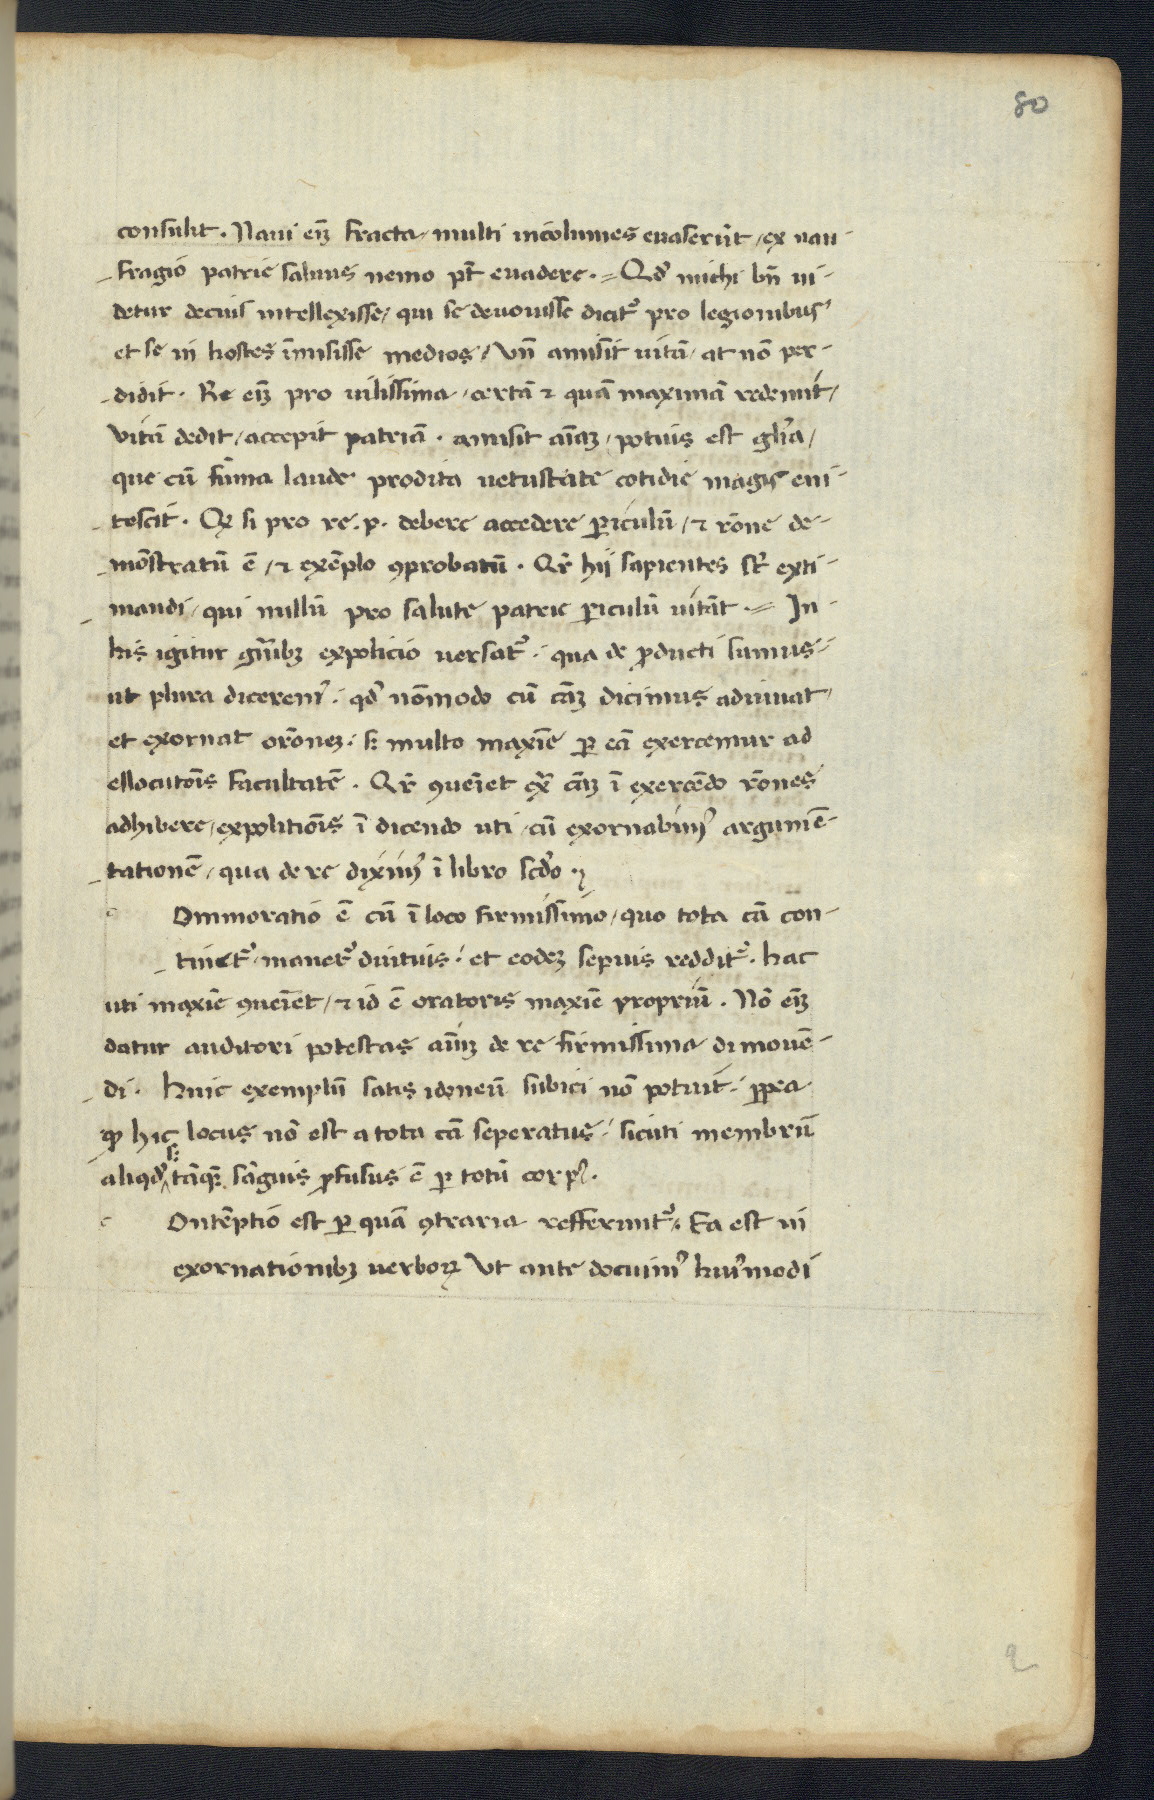 80
consulit. Naui eīȝ fracta / multi incolumes euaserūt / ex nau-
fragio patrie saluus nemo pt̄ euadere. = Qd̓ michi bn̄ ui-
detur decius intellexisse / qui se deuouisse dicit᷑ pro legionibus
et se in hostes īmisisse medios / Vn̄ amisit uitā / at nō per-
didit. Re eīȝ pro uilissima / certā ⁊ quā maximā redemit /
vitā dedit / accepit patriā. amisit aīaȝ / potius est glīa /
que cū sūma laude prodita uetustate cotidie magis eni-
tescit. Qꝫ si pro re. p. debere accedere ꝑiculū / ⁊ rōne de-
mōstratū ē / ⁊ exēplo ꝯprobatū. Qr̄ hij sapientes st̄ exti-
mandi / qui nullū pro salute patrie ꝑiculū uitāt. = In
his igitur gn̄ibꝫ expolicio uersat᷑. qua de ꝓducti sumus
ut plura dicerem᷒. qd̓ nōmodo cū cāȝ dicimus adiuuat /
et exornat orōneȝ. sꝫ multo maxīe ꝑ eā exercemur ad
ellocutōis facultatē. Qr̄ ꝯueīet ex̄ cāȝ ī exercēdo rōnes
adhibere / expolitiōis ī dicendo uti / cū exornabim᷒ argumē-
tationē / qua de re dixim᷒ ī libro scd̓o.
c Ommoratio ē cū ī loco firmissimo / quo tota cā con-
tinet᷑ / manet᷑ diutius / et eodeȝ sepius reddit᷑. hac
uti maxīe ꝯueīet / ⁊ id ē oratoris maxīe propriū. Nō eīȝ
datur auditori potestas aīūȝ de re firmissima dimouē-
di. Huic exemplū satis idoneū subici nō potuit. ꝓpea
ꝙ hic locus nō est a tota cā seperatus / sicuti membrū
aliqd̓ sꝫ tāqꝫ sāguis ꝓfusus ē ꝑ totū corp᷒.
c Ontēptio est ꝑ quā ꝯtraria refferunt᷑. Ea est in
exornationibꝫ uerboꝝ Vt ante docuim᷒ hui᷒modi
2